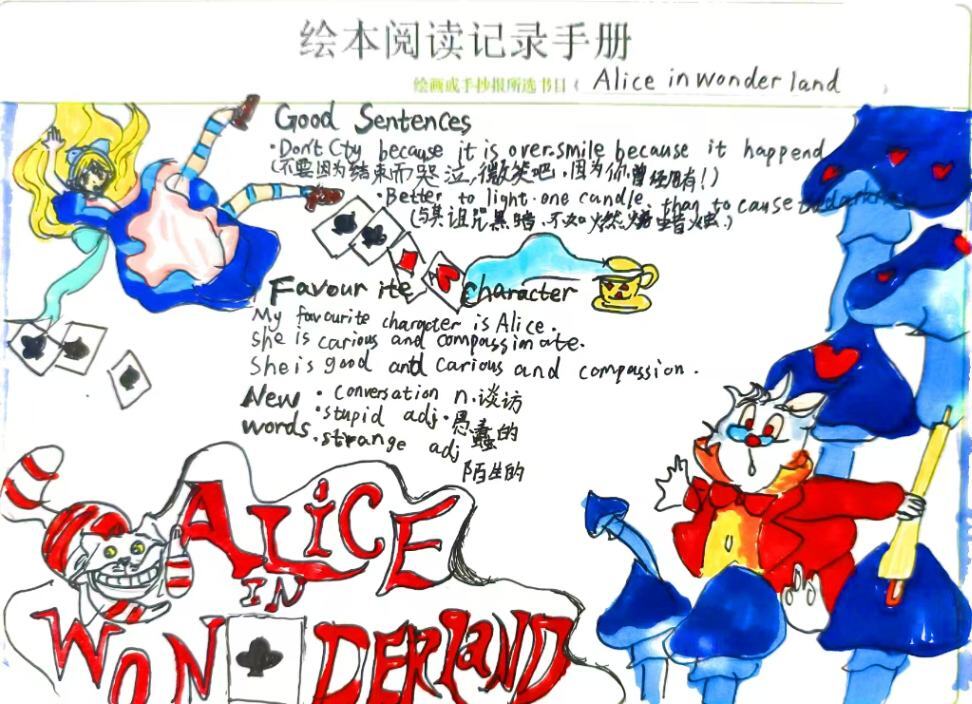 绘本阅读记录手册
绘画或手抄报所选书目( Alice in wonder land )
Good Sentences
·Don't Cty because it is over.smile because it happend
(不要因为结束而哭泣,微笑吧,因为你曾经拥有!)
·Better to light one candle, than to cause
(与其诅咒黑暗,不如燃烧蜡烛.)
Favourite character
My favourite character is Alice.
she is carious and compassimate.
She is good and carious and compassion.
New words
·conversation n.谈访
·stupid adj.愚蠢的
·strange adj
陌生的
ALiCE
IN
WONDERlaND